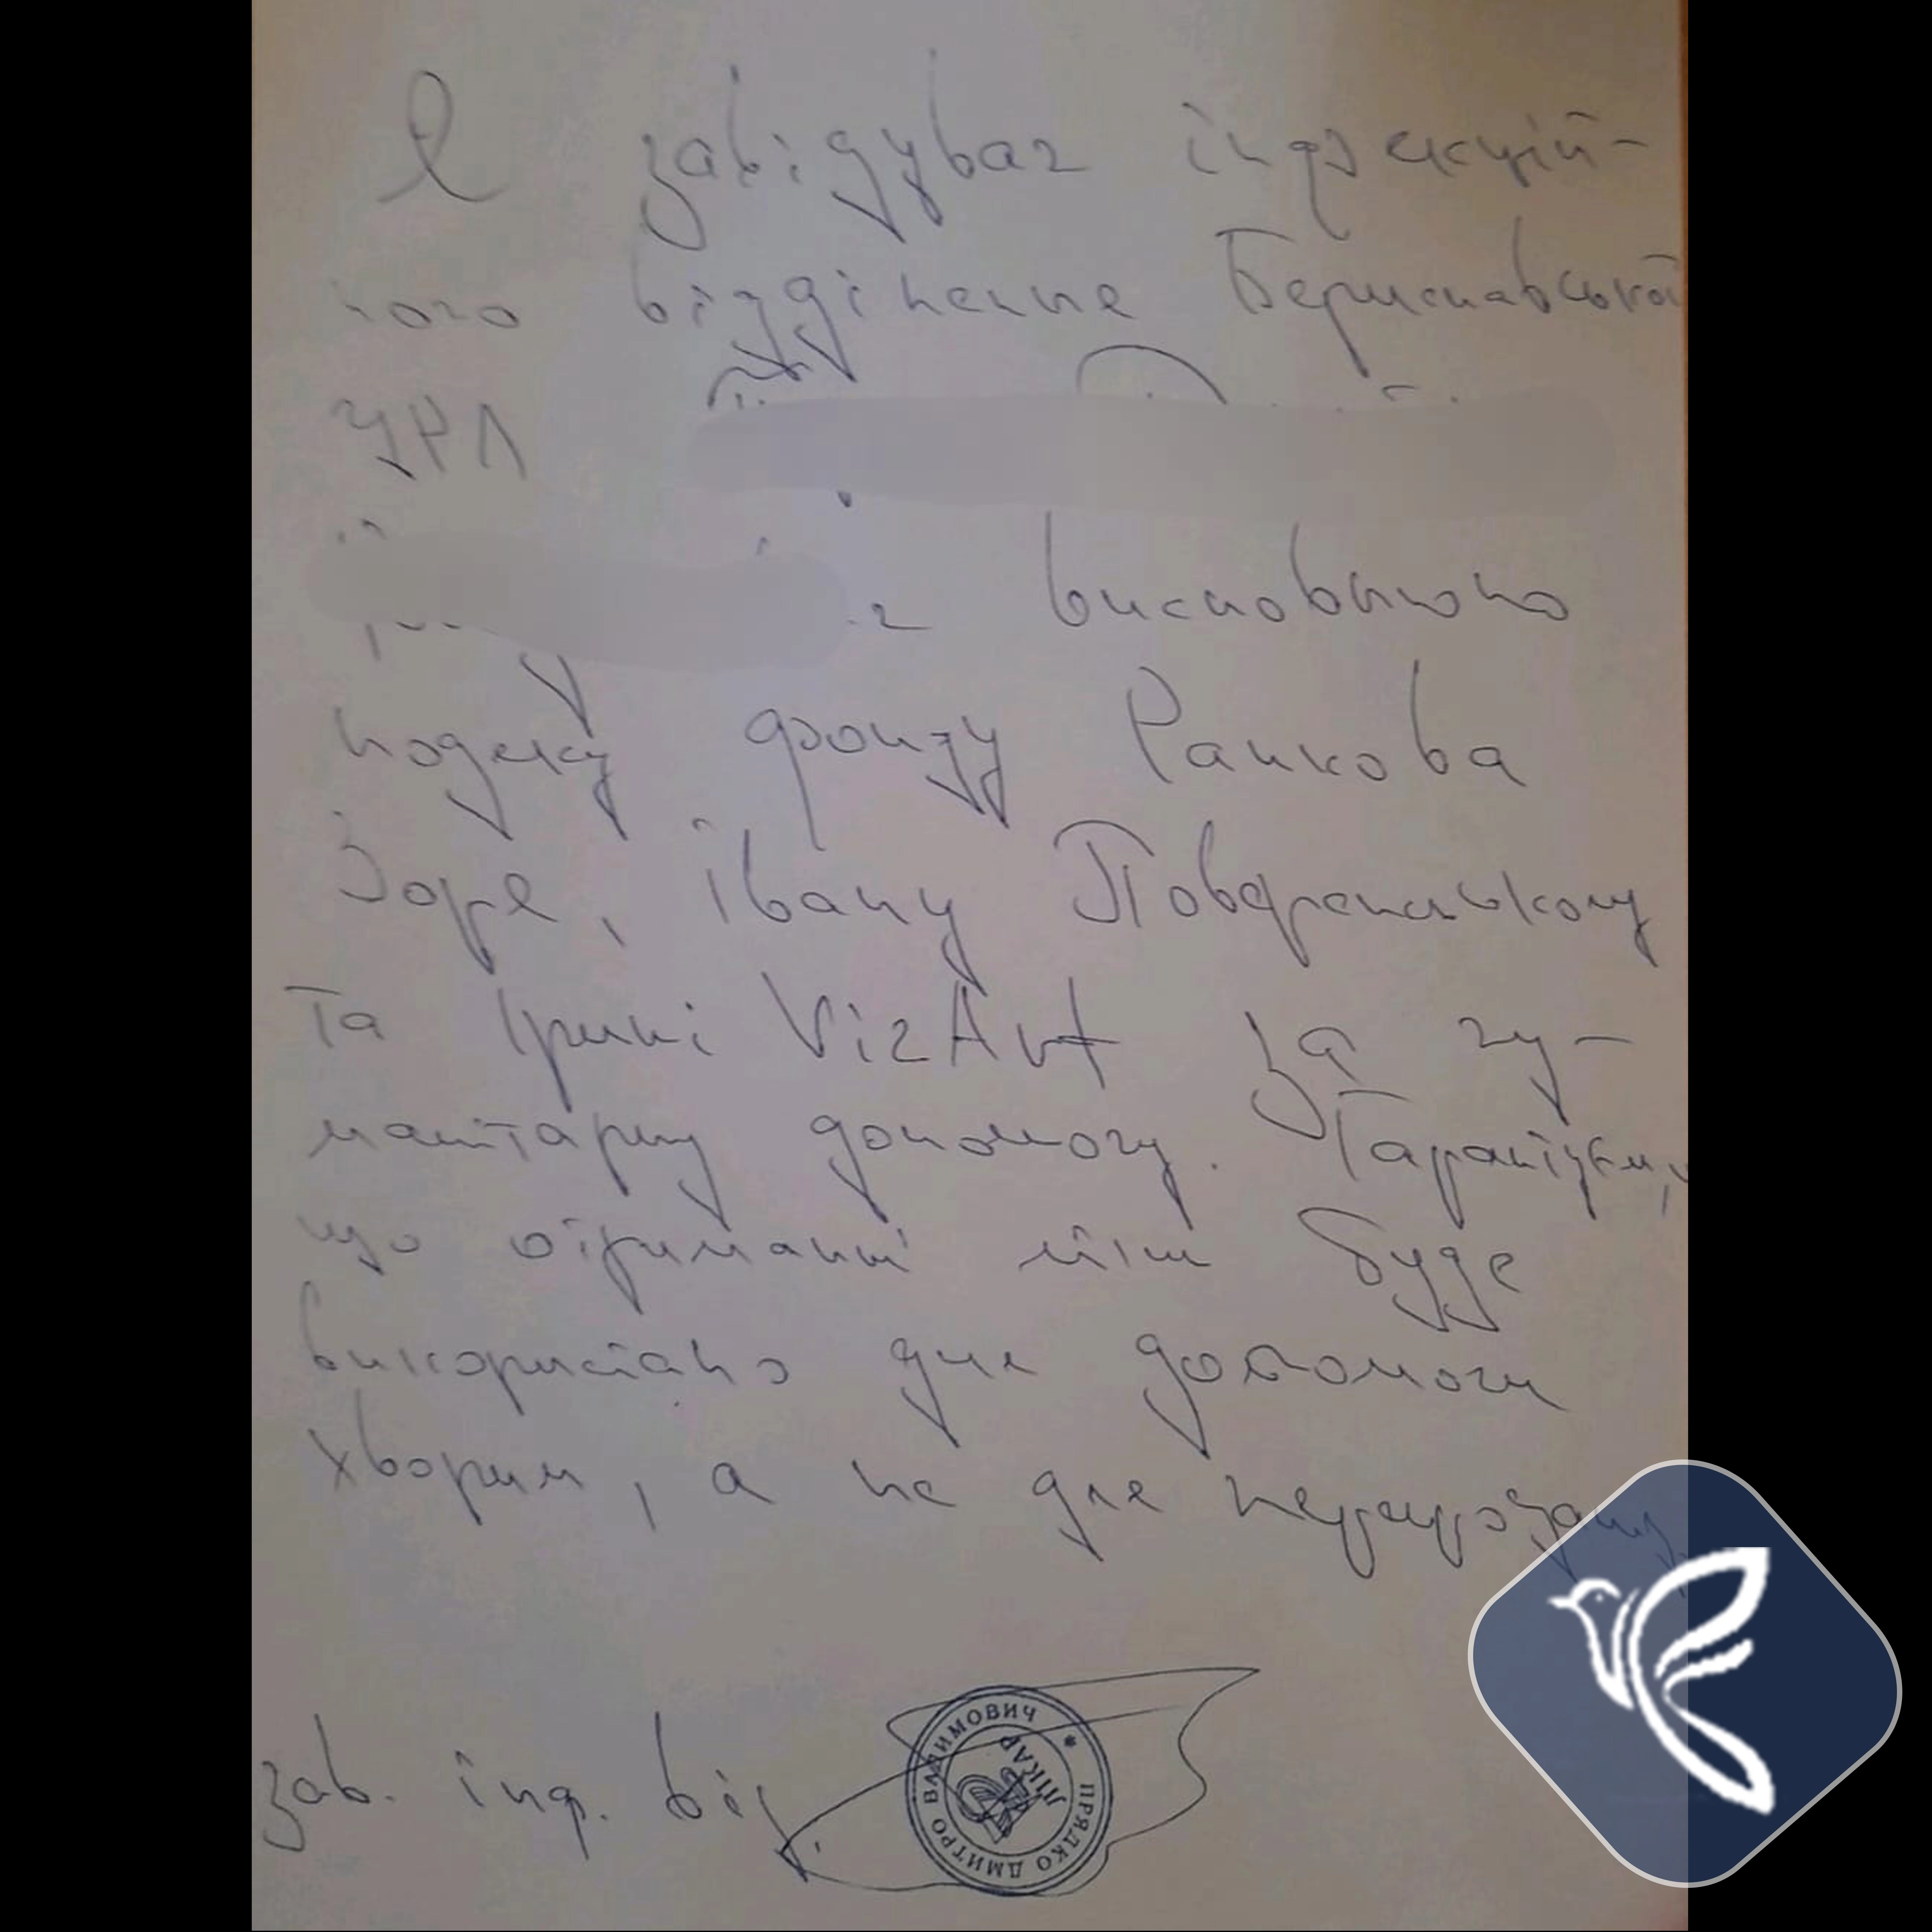 Я завідувач інфекцій-
ного відділення Бериславської
ЦРЛ
висловлюю
подяку фонду Ранкова
Зоря, Івану
та Ірині VizArt за гу-
манітарну допомогу. Гарантуєм,
що отримані ліки буде
використано для допомоги
хворим, а не для
зав. інф. від.
ПРЯДКО ДМИТРО ВАДИМОВИЧ
ЛІКАР